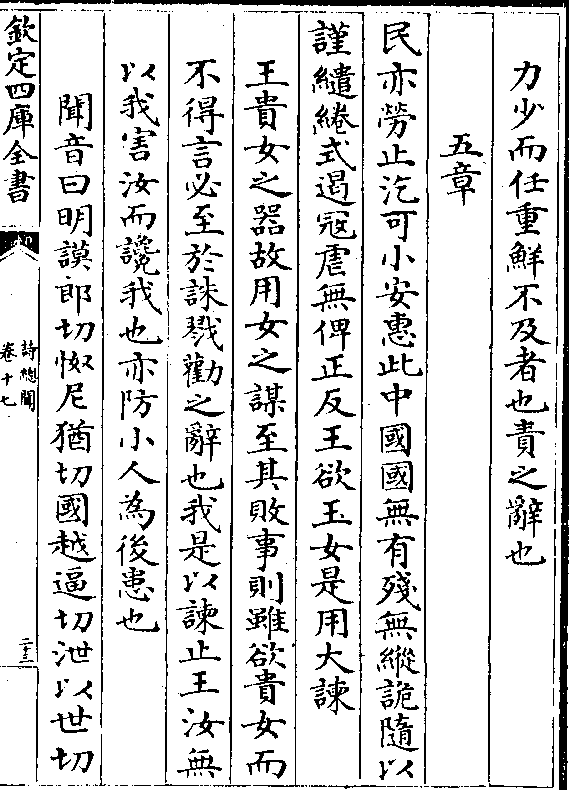 力少而任重鮮不及者也責之辭也
五章
民亦勞止汔可小安惠此中國國無有殘無縱詭隨以
謹繾綣式遏寇虐無俾正反王欲玉女是用大諫
王貴女之器故用女之謀至其敗事則雖欲貴女而
不得言必至於誅戮勸之辭也我是以諫止王汝無
以我害汝而讒我也亦防小人為後患也
聞音曰明謨郎切怓尼猶切國越逼切泄以世切
欽定四庫全書
詩總聞
卷十七
二十三